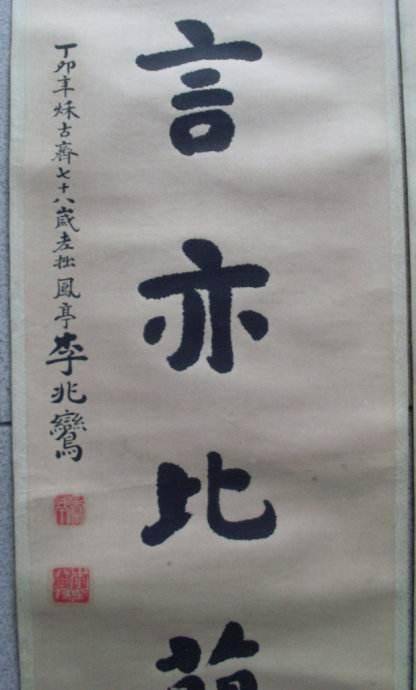 言亦比
丁卯年古齋七十八歲老拙鳳亭李兆鸞